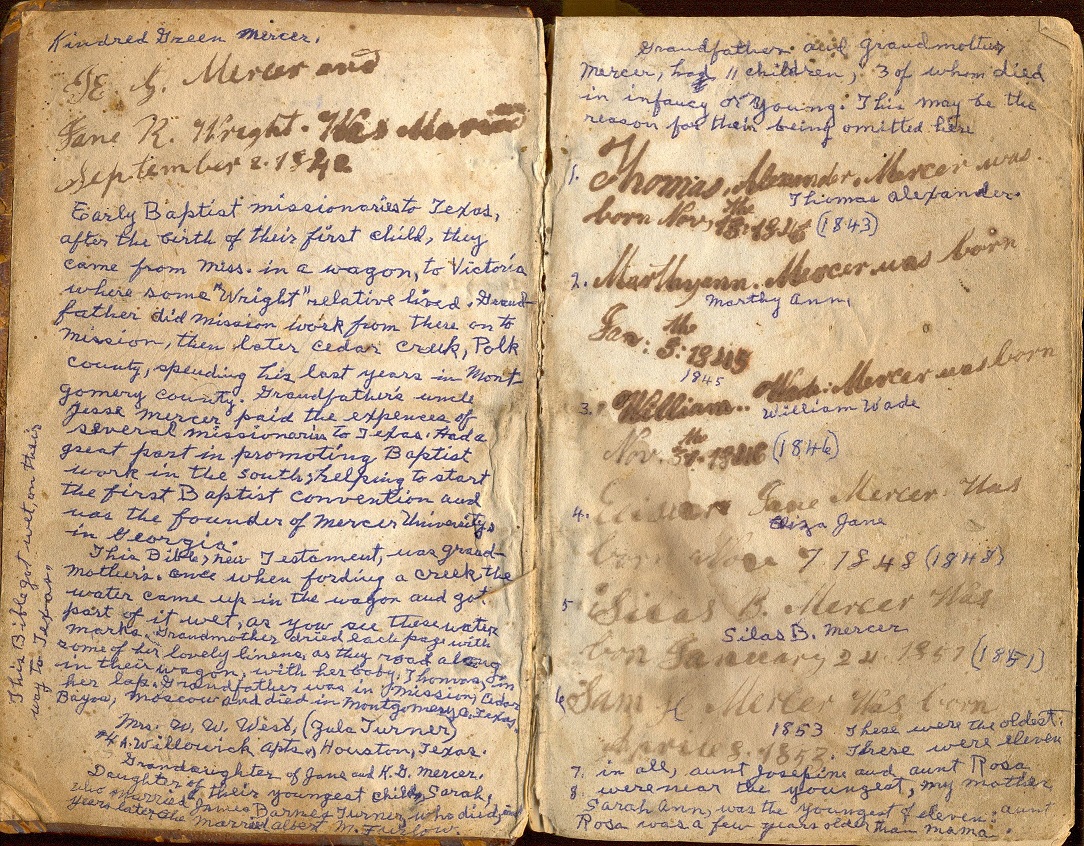 Kindred Green Mercer.
K. G. Mercer and
Jane R. Wright. Was Married
September 2. 1842
Early Baptist missionaries to Texas,
after the birth of their first child, they
came from Miss. in a wagon, to Victoria
where some "Wright" relative lived. Grand-
father did mission work from there on to
Mission, then later Cedar Creek, Polk
County, spending his last years in Mont-
gomery County. Grandfather's uncle
Jesse Mercer paid the expences of
several missionaries to Texas. Had a
great part in promoting Baptist
work in the south; helping to start
the first Baptist Convention and
was the founder of Mercer University,
in Georgia.
This Bible, new Testament, was grand-
mother's. Once when fording a creek, the
water came up in the wagon and got
part of it wet, as you see these water
marks. Grandmother dried each page with
some of her lovely linens, as they road along
in their wagon, with her baby, Thomas, in
her lap. Grandfather was in Mission, Cedar
Bayou, Moscow and died in Montgomery Co. Texas.
Mrs. W. W. West, (Zula Turner)
#4 A. Willowick Apts, Houston, Texas.
Grandaughter of Jane and K. G. Mercer.
Daughter of their youngest child, Sarah,
who married James Barnes Turner, who died, and
years later she married Albert M.
This Bible got wet, on their
way to Texas.
Grandfather and grandmother
Mercer, had 11 children, 3 of whom died
in infancy or young. This may be the
reason for their being omitted here
1. Thomas. Alexander. Mercer was.
Thomas Alexander.
born Nov, the 18. 1843 (1843)
2. Marthyann. Mercer was born
Marthy Ann,
Jan: the 5: 1845
1845
3. William. Wade. Mercer was born
William Wade
Nov. the 1846 (1846)
4. Jane Mercer Was
Eliza Jane
born 7 1848 (1848)
5 Silas B. Mercer Was
Silas B. Mercer
born January 24 1851 (1851)
6 Sam H Mercer Was born
1853 These were the oldest.
April 8. 1853. There were eleven
7. in all, aunt Josephine and aunt Rosa
8. were near the youngest, my mother
Sarah Ann, was the youngest of eleven: aunt
Rosa was a few years older than mama.